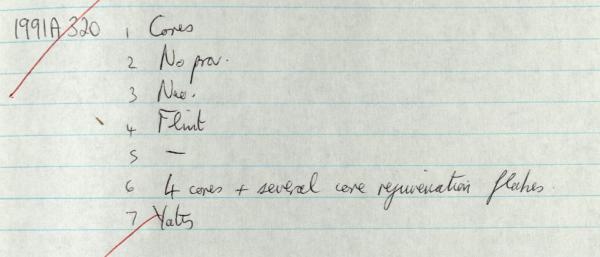 1991A 320 1 Cores
2 No prov.
3 Neo.
4 Flint
5 —
6 4 cores + several core rejuvenation flakes.
7 Yates